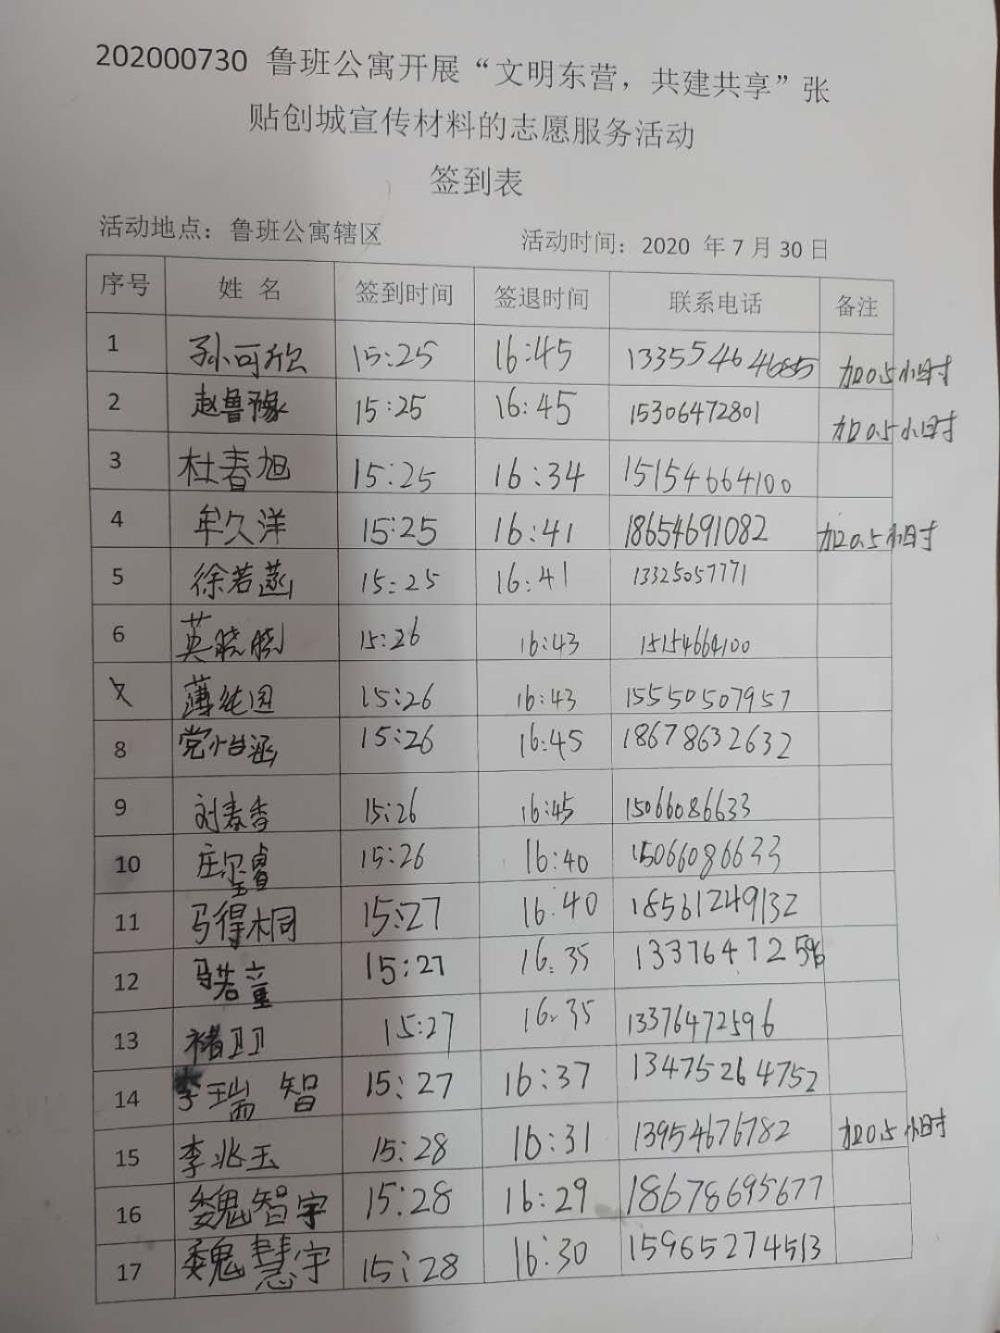 202000730 鲁班公寓开展“文明东营，共建共享”张
贴创城宣传材料的志愿服务活动
签到表
活动地点：鲁班公寓辖区 活动时间：2020 年 7 月 30 日
序号 姓 名 签到时间 签退时间 联系电话 备注
1 孙可欣 15:25 16:45 加0.5小时
2 赵鲁豫 15:25 16:45 15306472801 加0.5小时
3 杜春旭 15:25 16:34 15154664100
4 牟久洋 15:25 16:41 18654691082 加0.5小时
5 徐若菡 15:25 16:41 13325057771
6 英晓晓 15:26 16:43 15154664100
薄纯 15:26 16:43 15550507957
8 党怡涵 15:26 16:45 18678632632
9 刘春香 15:26 16:45 15066086633
10 庄玺睿 15:26 16:40 15066086633
11 马得桐 15:27 16:40 18561249132
12 马若童 15:27 16:35 13376472596
13 褚卫卫 15:27 16:35 13376472596
14 李瑞智 15:27 16:37 13475264752
15 李兆玉 15:28 16:31 13954676782 加0.5小时
16 魏智宇 15:28 16:29 18678695677
17 魏慧宇 15:28 16:30 15965274513